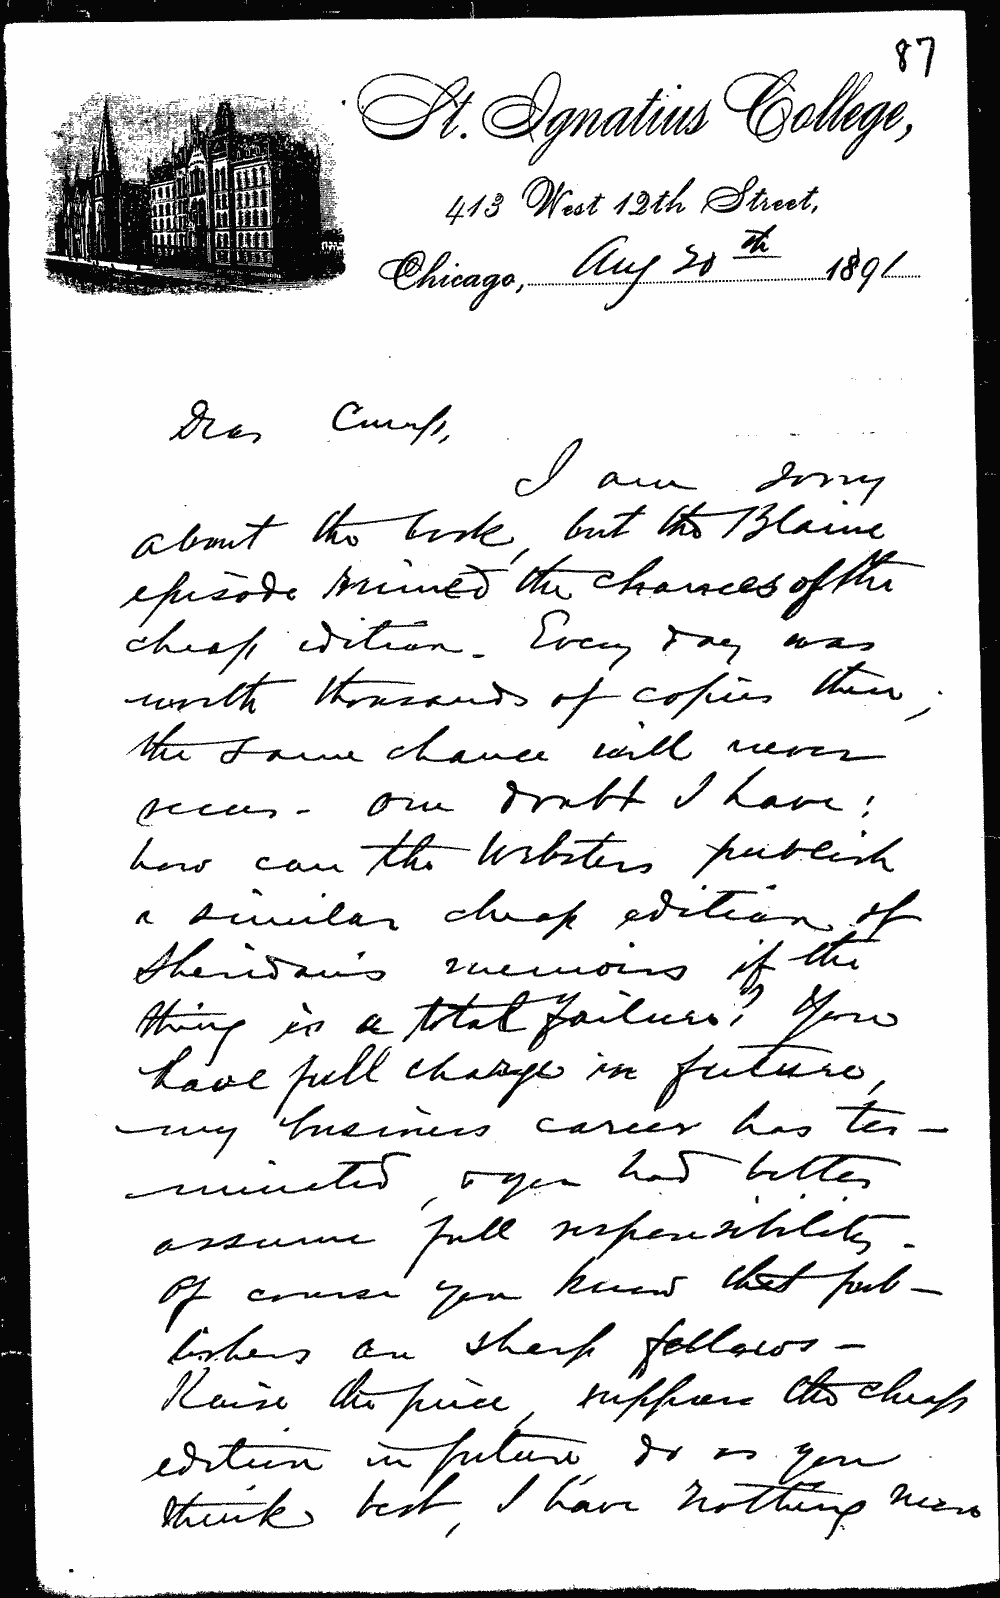 87
St. Ignatius College,
413 West 12th Street,
Chicago, Aug 20th 1891
Dear Cump,
I am sorry
about the book, but the Blaine
episode ruined the chances of the
cheap edition. Every day was
worth thousands of copies then;
the same chance will never
recur - One doubt I have:
how can the Websters publish
a similar cheap edition of
Sheridan's memoirs if the
thing is a total failure? You
have full charge in future,
my business career has ter-
minated, & you had better
assume full responsibility.
Of course you know that pub-
lishers are sharp fellows -
Raise the price, suppress the cheap
edition in future do as you
think best, I have nothing more